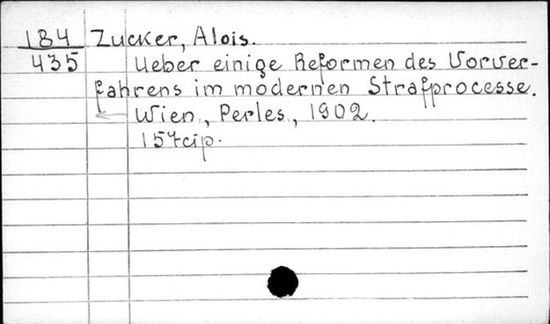 184 Zucker, Alois.
435 Ueber einige Reformen des Vorver-
fahrens im modernen Strafprocesse.
Wien, Perles, 1902.